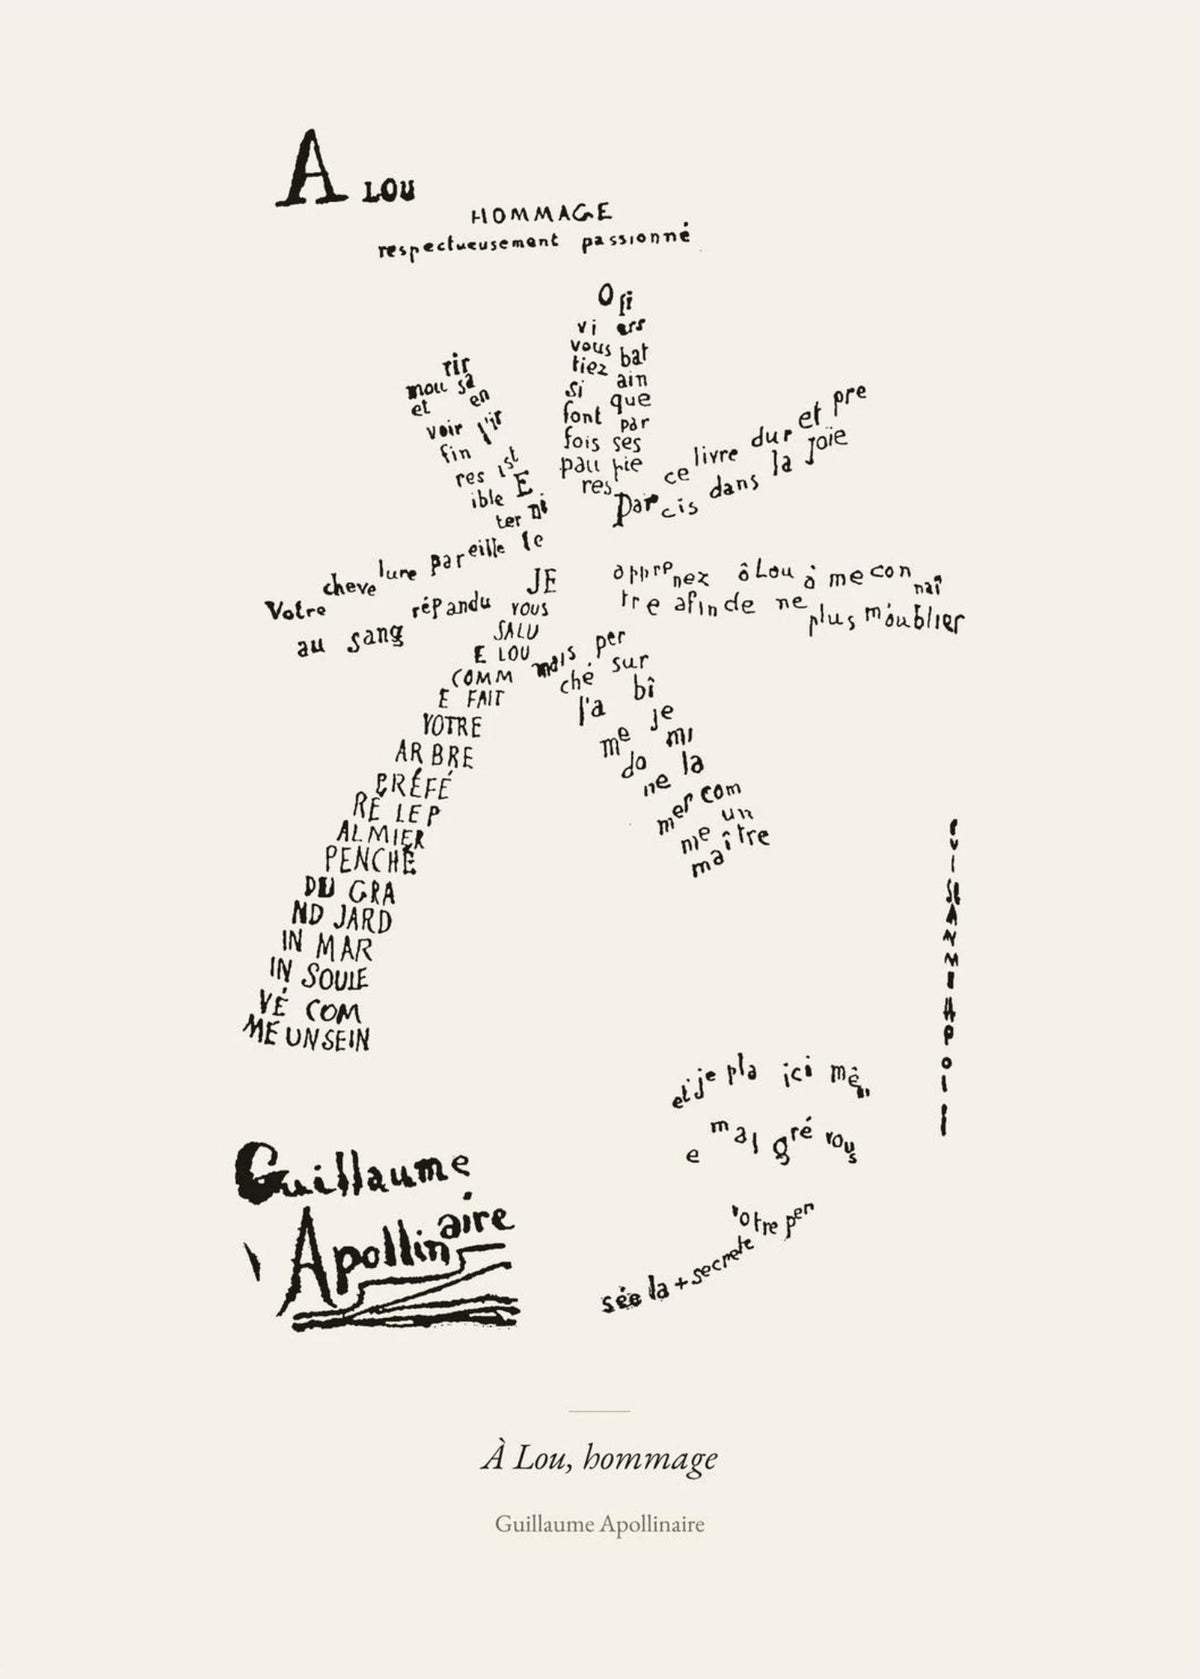 A LOU
HOMMAGE
respectueusement passionné
O fi
vi ers
vous bat
tiez ain
si que
font par
fois ses
pau pie
res
rir
mou sa
et en
voir l'ir
fin
res ist
ible E
ter ni
Par ce livre dur et pre
cis dans la joie
Votre chevelure pareille le
au sang répandu
apprenez ô Lou à me connaî
tre afin de ne plus m'oublier
JE
VOUS
SALU
E LOU
COMM
E FAIT
VOTRE
AR BRE
PRÉFÉ
RÉ LE P
ALMIER
PENCHÉ
DU GRA
ND JARD
IN MAR
IN SOULE
VÉ COM
ME UN SEIN
mais per
ché sur
l'a bî
me je
do mi
ne la
mer com
me un
maître
et je pla ici mê
e malgré vous
votre pen
sée la + secrete
Guillaume
Apollinaire
À Lou, hommage
Guillaume Apollinaire